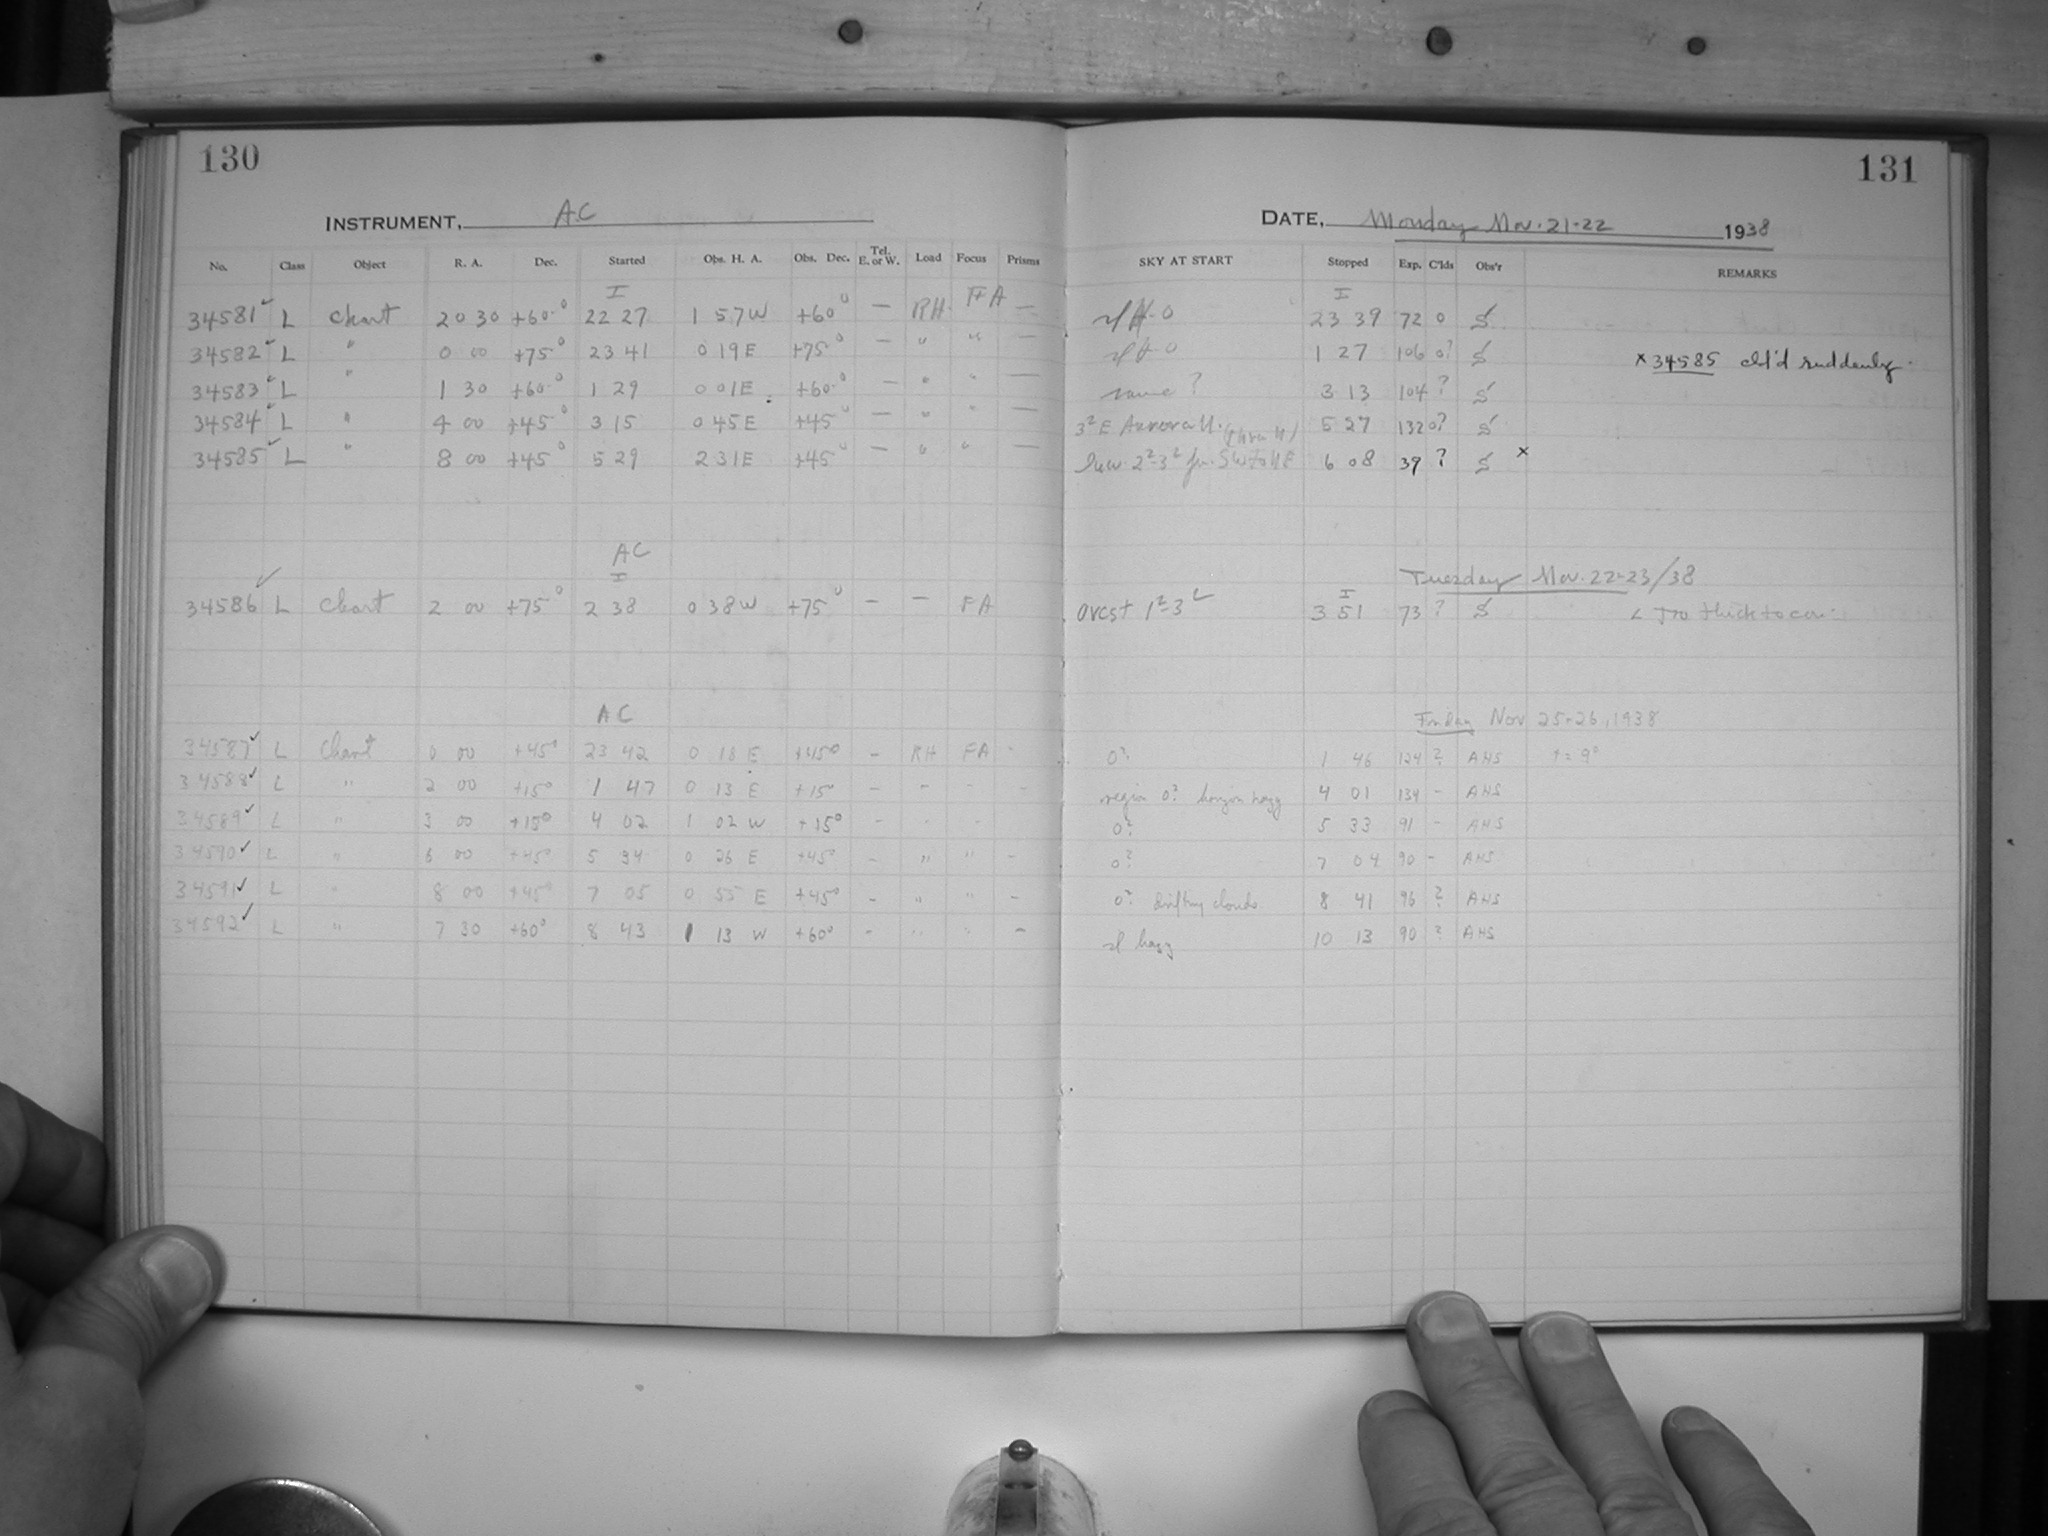 130
131
INSTRUMENT, AC
DATE, Monday Nov. 21-22 1938
No. Class Object R. A. Dec. Started Obs. H. A. Obs. Dec. Tel. E. or W. Load Focus Prisms SKY AT START Stopped Exp. C'lds Obs'r REMARKS
I I
34581 ✓ L Chart 20 30 +60° 22 27 1 57 W +60° — RH FA — 0 23 39 72 0 S
34582 ✓ L " 0 00 +75° 23 41 0 19 E +75° — " " — 0 1 27 106 0? S x 34585 cl'd suddenly.
34583 ✓ L " 1 30 +60° 1 29 0 01 E +60° — " " — same? 3 13 104 ? S
34584 ✓ L " 4 00 +45° 3 15 0 45 E +45° — " " — 3² E Aurora N. 5 27 132 0? S
34585 ✓ L " 8 00 +45° 5 29 2 31 E +45° — " " — 2²-3² fr. SW to NE 6 08 39 ? S x
AC Tuesday Nov. 22-23/38
I I
34586 ✓ L Chart 2 00 +75° 2 38 0 38 W +75° — — FA ovcst 1²-3² 3 51 73 ? S Too thick to con.
AC Friday Nov 25-26, 1938
34587 ✓ L Chart 0 00 +45° 23 42 0 18 E +45° - RH FA - 0? 1 46 124 ? AHS t = 9°
34588 ✓ L " 2 00 +15° 1 47 0 13 E +15° - - - - region 0? horizon hazy 4 01 134 - AHS
34589 ✓ L " 3 00 +15° 4 02 1 02 W +15° - - - 0? 5 33 91 - AHS
34590 ✓ L " 6 00 +45° 5 34 0 26 E +45° - " " - 0? 7 04 90 - AHS
34591 ✓ L " 8 00 +45° 7 05 0 55 E +45° - " " - 0? drifting clouds 8 41 96 ? AHS
34592 ✓ L " 7 30 +60° 8 43 1 13 W +60° - " " - sl hazy 10 13 90 ? AHS